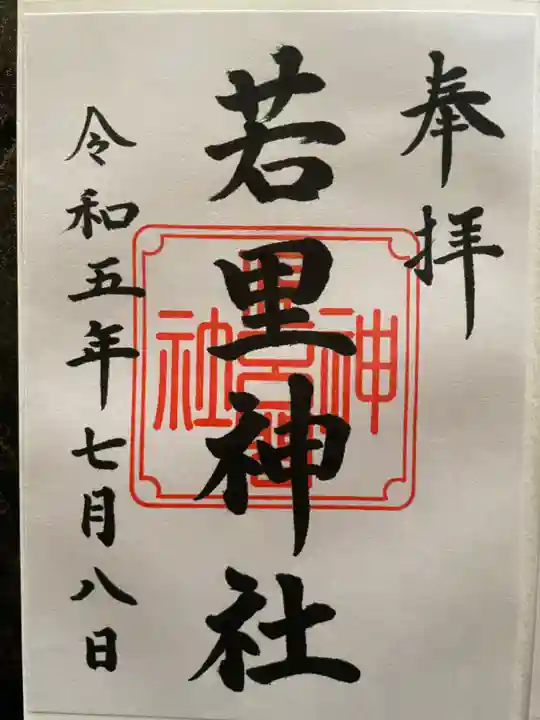 奉拝
若里神社
令和五年七月八日